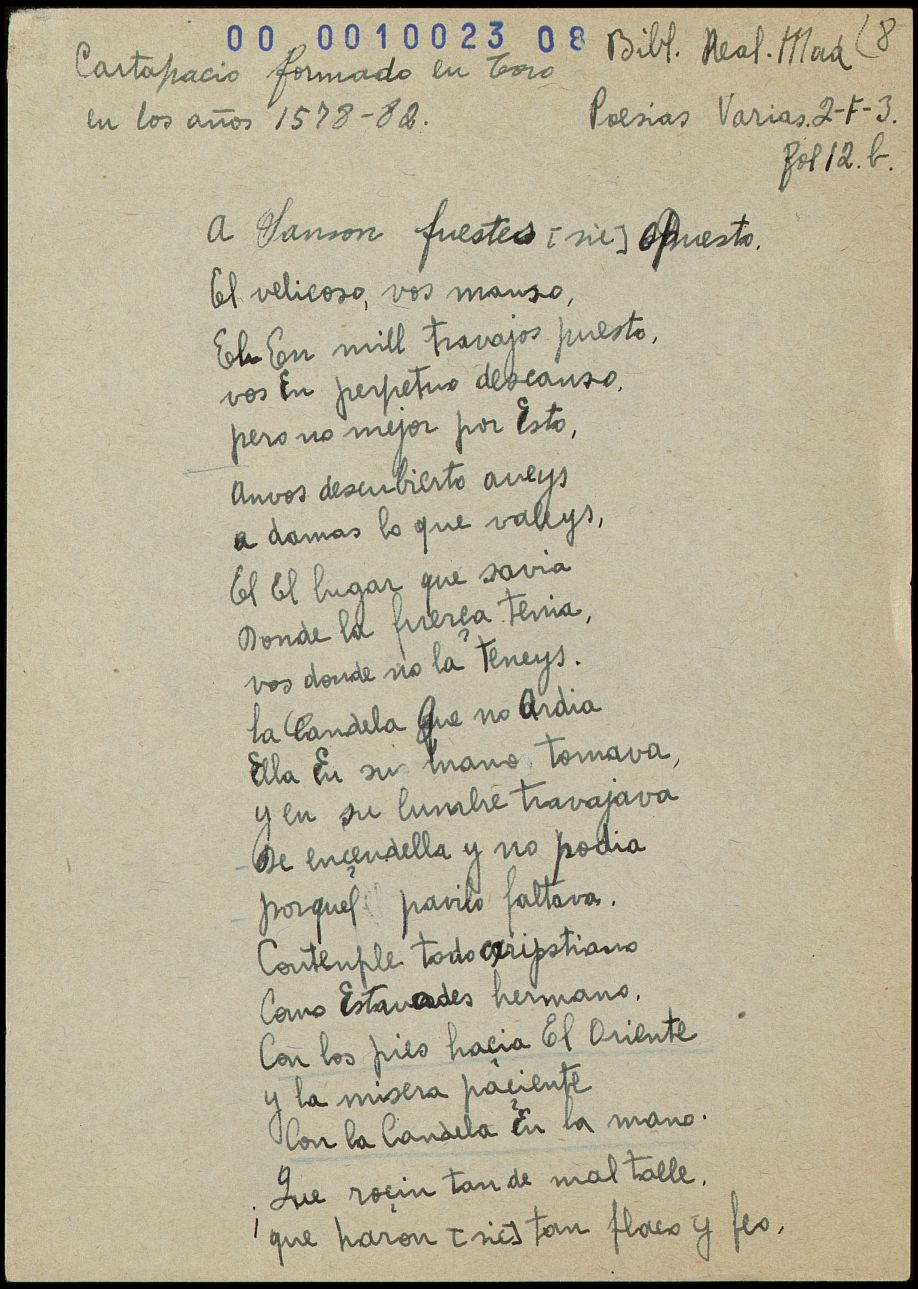 00 0010023 08
Cartapacio formado en Toro
en los años 1578-82.
Bibl. Real. Mad (8
Poesias Varias. 2-F-3.
fol 12. b.
A Sanson fuestes [sic] opuesto.
El velicoso, vos manso,
El En mill travajos puesto,
vos En perpetuo descanso.
pero no mejor por Esto,
Anvos descubierto aveys
a damas lo que valeys,
El El lugar que savia
Donde la fuerça tenia,
vos donde no la teneys.
la Candela Que no Ardia
Ella En su mano tomava,
y en su lumbre travajava
De encendella y no podia
porquel pavilo faltava.
Contenple todo cripstiano
Como Estavades hermano,
Con los pies haçia El Oriente
y la misera paçiente
Con la Candela En la mano.
Que roçin tan de mal talle,
que haron [sic] tan flaco y feo,